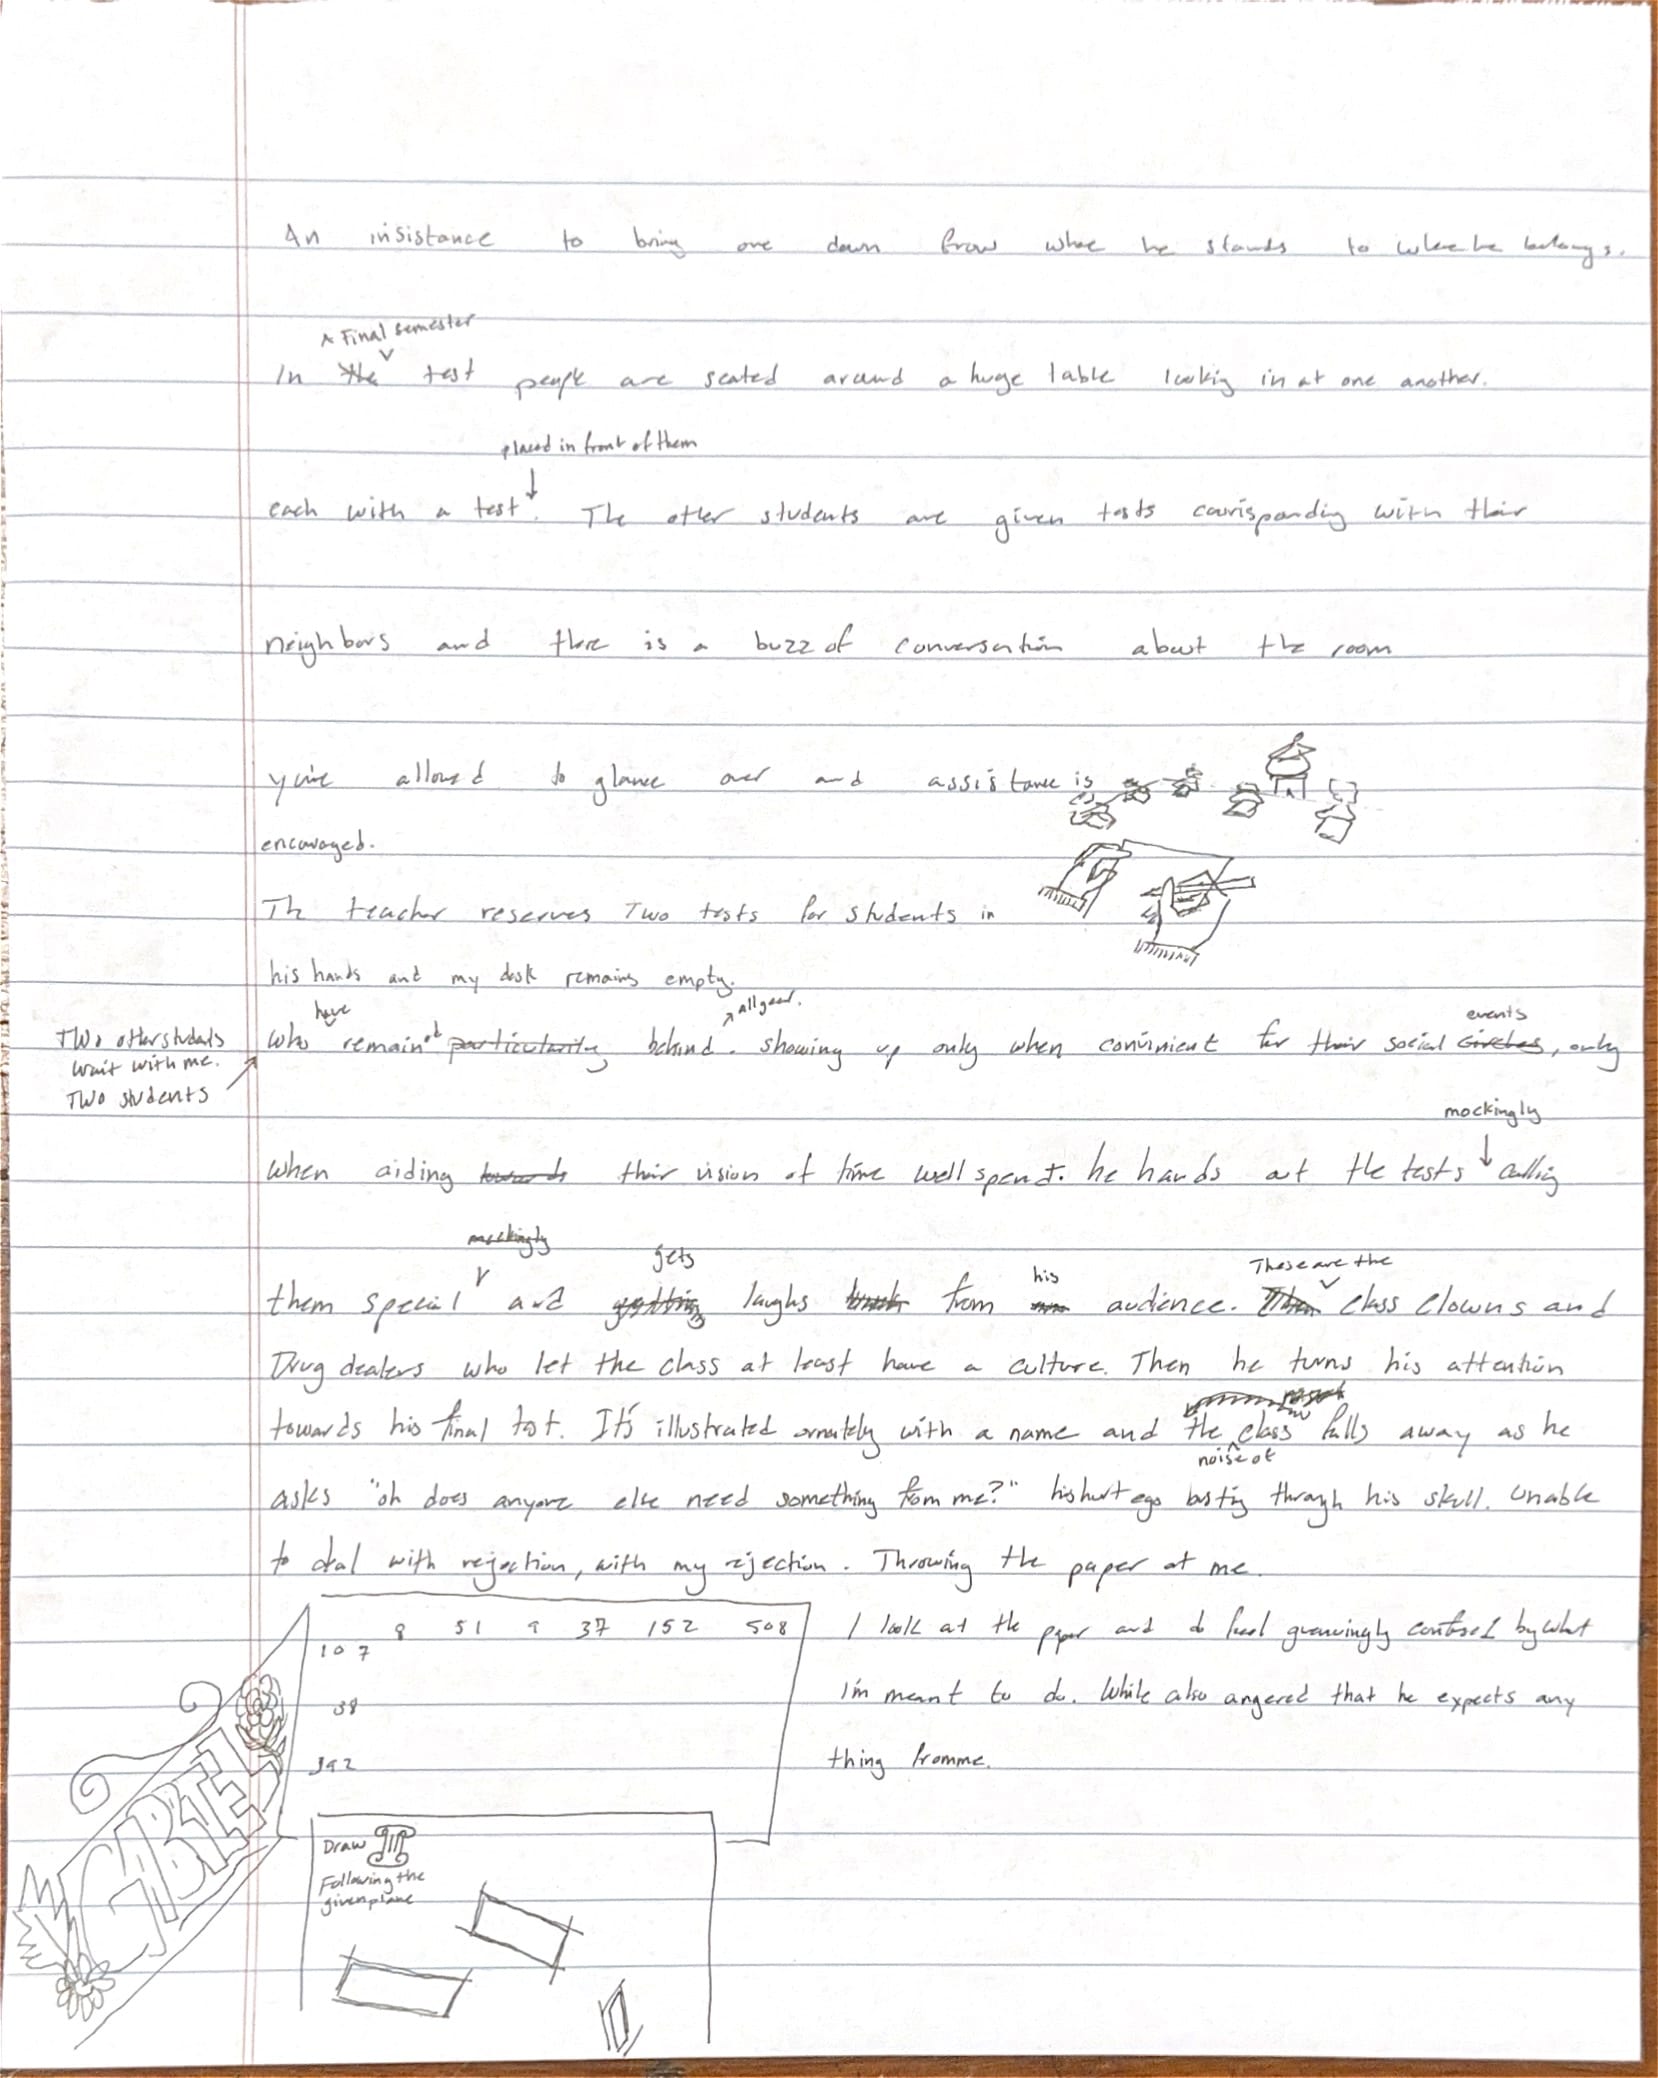 An insistance to bring one down from where he stands to where he belongs.
A Final semester
In the test people are seated around a huge table lookig in at one another.
placed in front of them
each with a test. The other students are given tests courispondig with their
neighbors and there is a buzz of conversation about the room
your allowed to glance over and assistance is
encouraged.
Th teacher reserves Two tests for students in
his hands and my desk remains empty.
have
all year.
Two other students
wait with me.
Two students
who remained particularity behind. showing up only when convinient for their social circles, only
events
mockingly
when aiding towards their vision of time well spent. he hands out the tests callig
mockingly
gets
his
These are the
them special and getting laughs from audience. class clowns and
Drug dealers who let the class at least have a culture. Then he turns his attention
towards his final test. It's illustrated ornately with a name and the class falls away as he
noise of
asks "oh does anyone else need something from me?" his hurt ego bustig through his skull. Unable
to deal with rejection, with my rejection. Throwing the paper at me.
8 51 9 37 152 508
107
38
392
I look at the paper and do feel growingly confused by what
I'm meant to do. While also angered that he expects any
thing from me.
GABRIEL
Draw
Following the
given plane